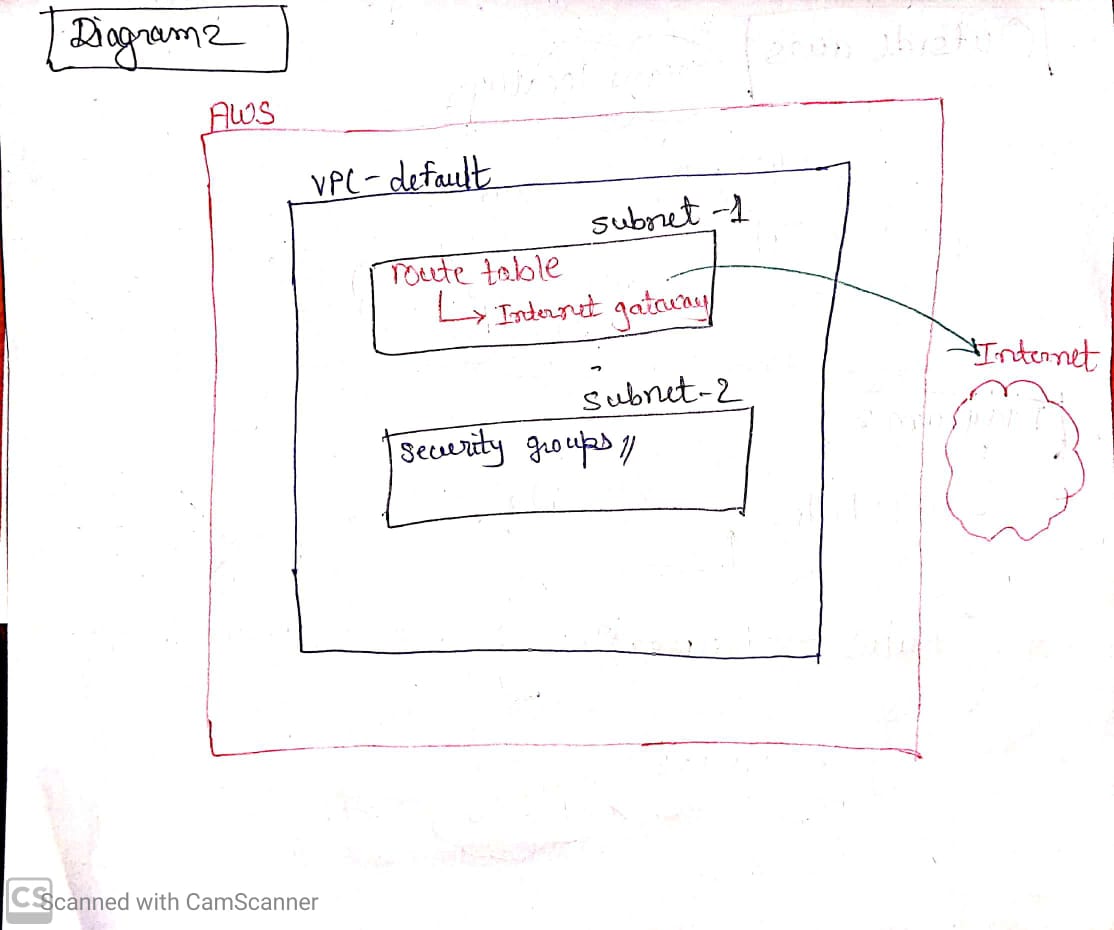 Diagram 2
AWS
VPC - default
subnet -1
route table
↳ Internet gateway
Internet
Subnet-2
security groups //
CS
Scanned with CamScanner